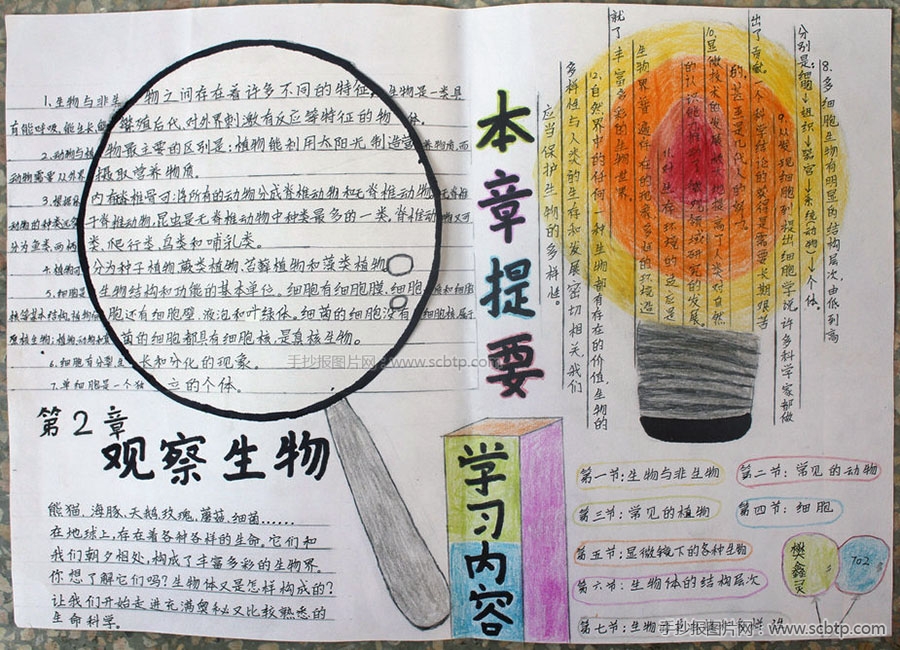 1、生物与非生物之间存在着许多不同的特征,生物是一类具
有能呼吸,能生长,能繁殖后代,对外界刺激有反应等特征的物体。
2、动物与植物最主要的区别是:植物能利用太阳光,制造营养物质,而
动物需要从外界摄取营养物质。
3、根据体内有无脊椎骨可将所有的动物分成脊椎动物和无脊椎动物,无脊椎
动物的种类远多于脊椎动物,昆虫是无脊椎动物中种类最多的一类,脊椎动物又可
分为鱼类,两栖类、爬行类、鸟类和哺乳类。
4、植物可分为种子植物、蕨类植物、苔藓植物和藻类植物。
5、细胞是生物结构和功能的基本单位。细胞有细胞膜、细胞质和细胞
核等基本结构,植物细胞还有细胞壁、液泡和叶绿体。细菌的细胞没有细胞核,属于
原核生物;植物、动物和真菌的细胞都具有细胞核,是真核生物。
6、细胞有分裂、生长和分化的现象。
7、单细胞是一个独立的个体。
第2章
观察生物
熊猫、海豚、天鹅、玫瑰、蘑菇、细菌……
在地球上,存在着各种各样的生命。它们和
我们朝夕相处,构成了丰富多彩的生物界。
你想了解它们吗?生物体又是怎样构成的?
让我们开始走进充满奥秘又比较熟悉的
生命科学。
本章提要
8、多细胞生物有明显的结构层次,由低到高
分别是:细胞→组织→器官→系统(动物)→个体。
9、从发现细胞到提出细胞学说,许多科学家都做
出了贡献。一个科学结论的获得是需要长期艰苦
的,甚至是几代人的努力。
10、显微技术的发展,大大地提高了人类对自然
的认识能力,
生物界普遍存在的现象,多样的环境造
就了丰富多彩的生物世界。
12、自然界中的任何一种生物都有存在的价值,生物的
多样性与人类的生存和发展密切相关,我们
应当保护生物的多样性。
学习内容
第一节:生物与非生物
第二节:常见的动物
第三节:常见的植物
第四节:细胞
第五节:显微镜下的各种生物
第六节:生物体的结构层次
第七节:生物
樊鑫灵
702
手抄报图片网:www.scbtp.com
手抄报图片网:www.scbtp.com